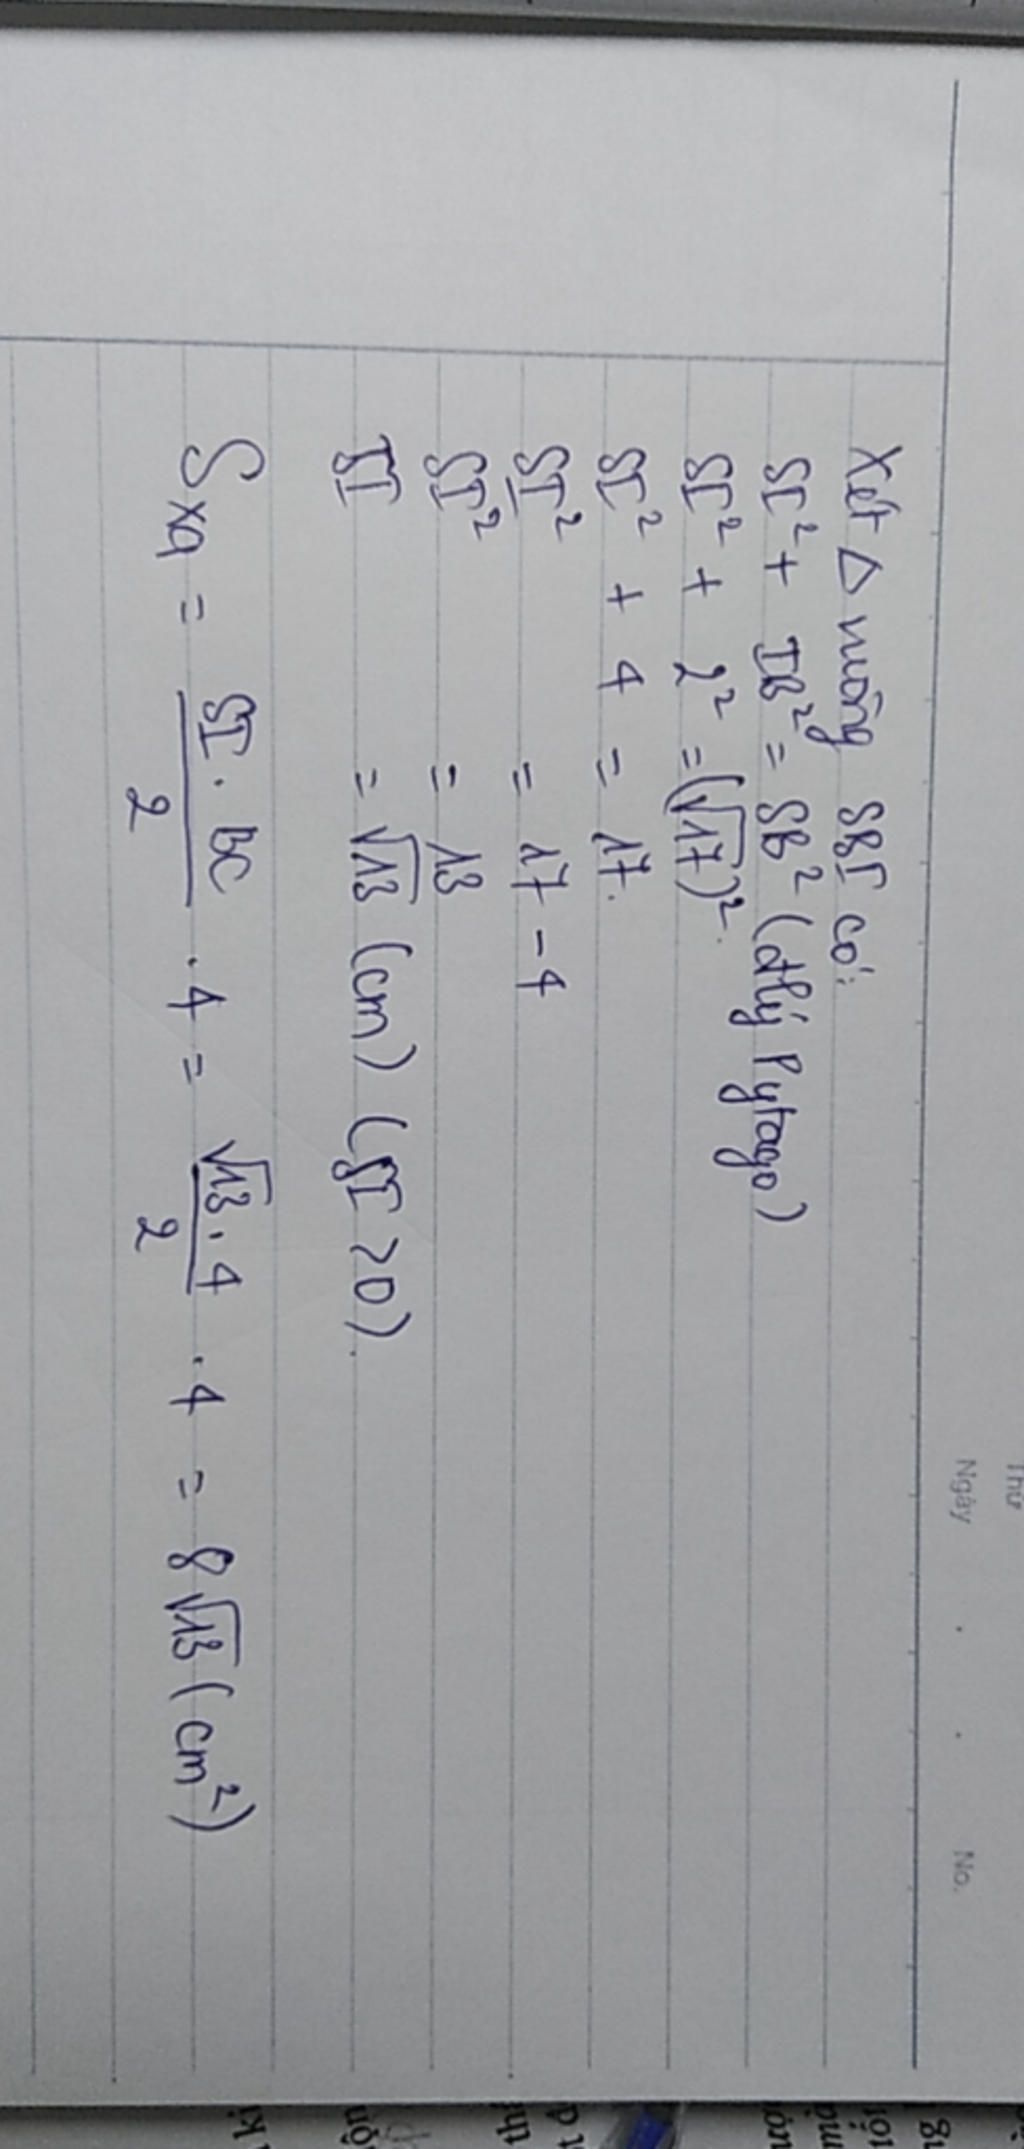 Thứ
Ngày . . No.
Xét Δ vuông SBI có:
SI² + IB² = SB² (đlý Pytago)
SI² + 2² = (√17)².
SI² + 4 = 17.
SI² = 17 - 4
SI² = 13
SI = √13 (cm) (SI > 0).
Sxq = SI . BC / 2 . 4 = √13 . 4 / 2 . 4 = 8√13 (cm²)